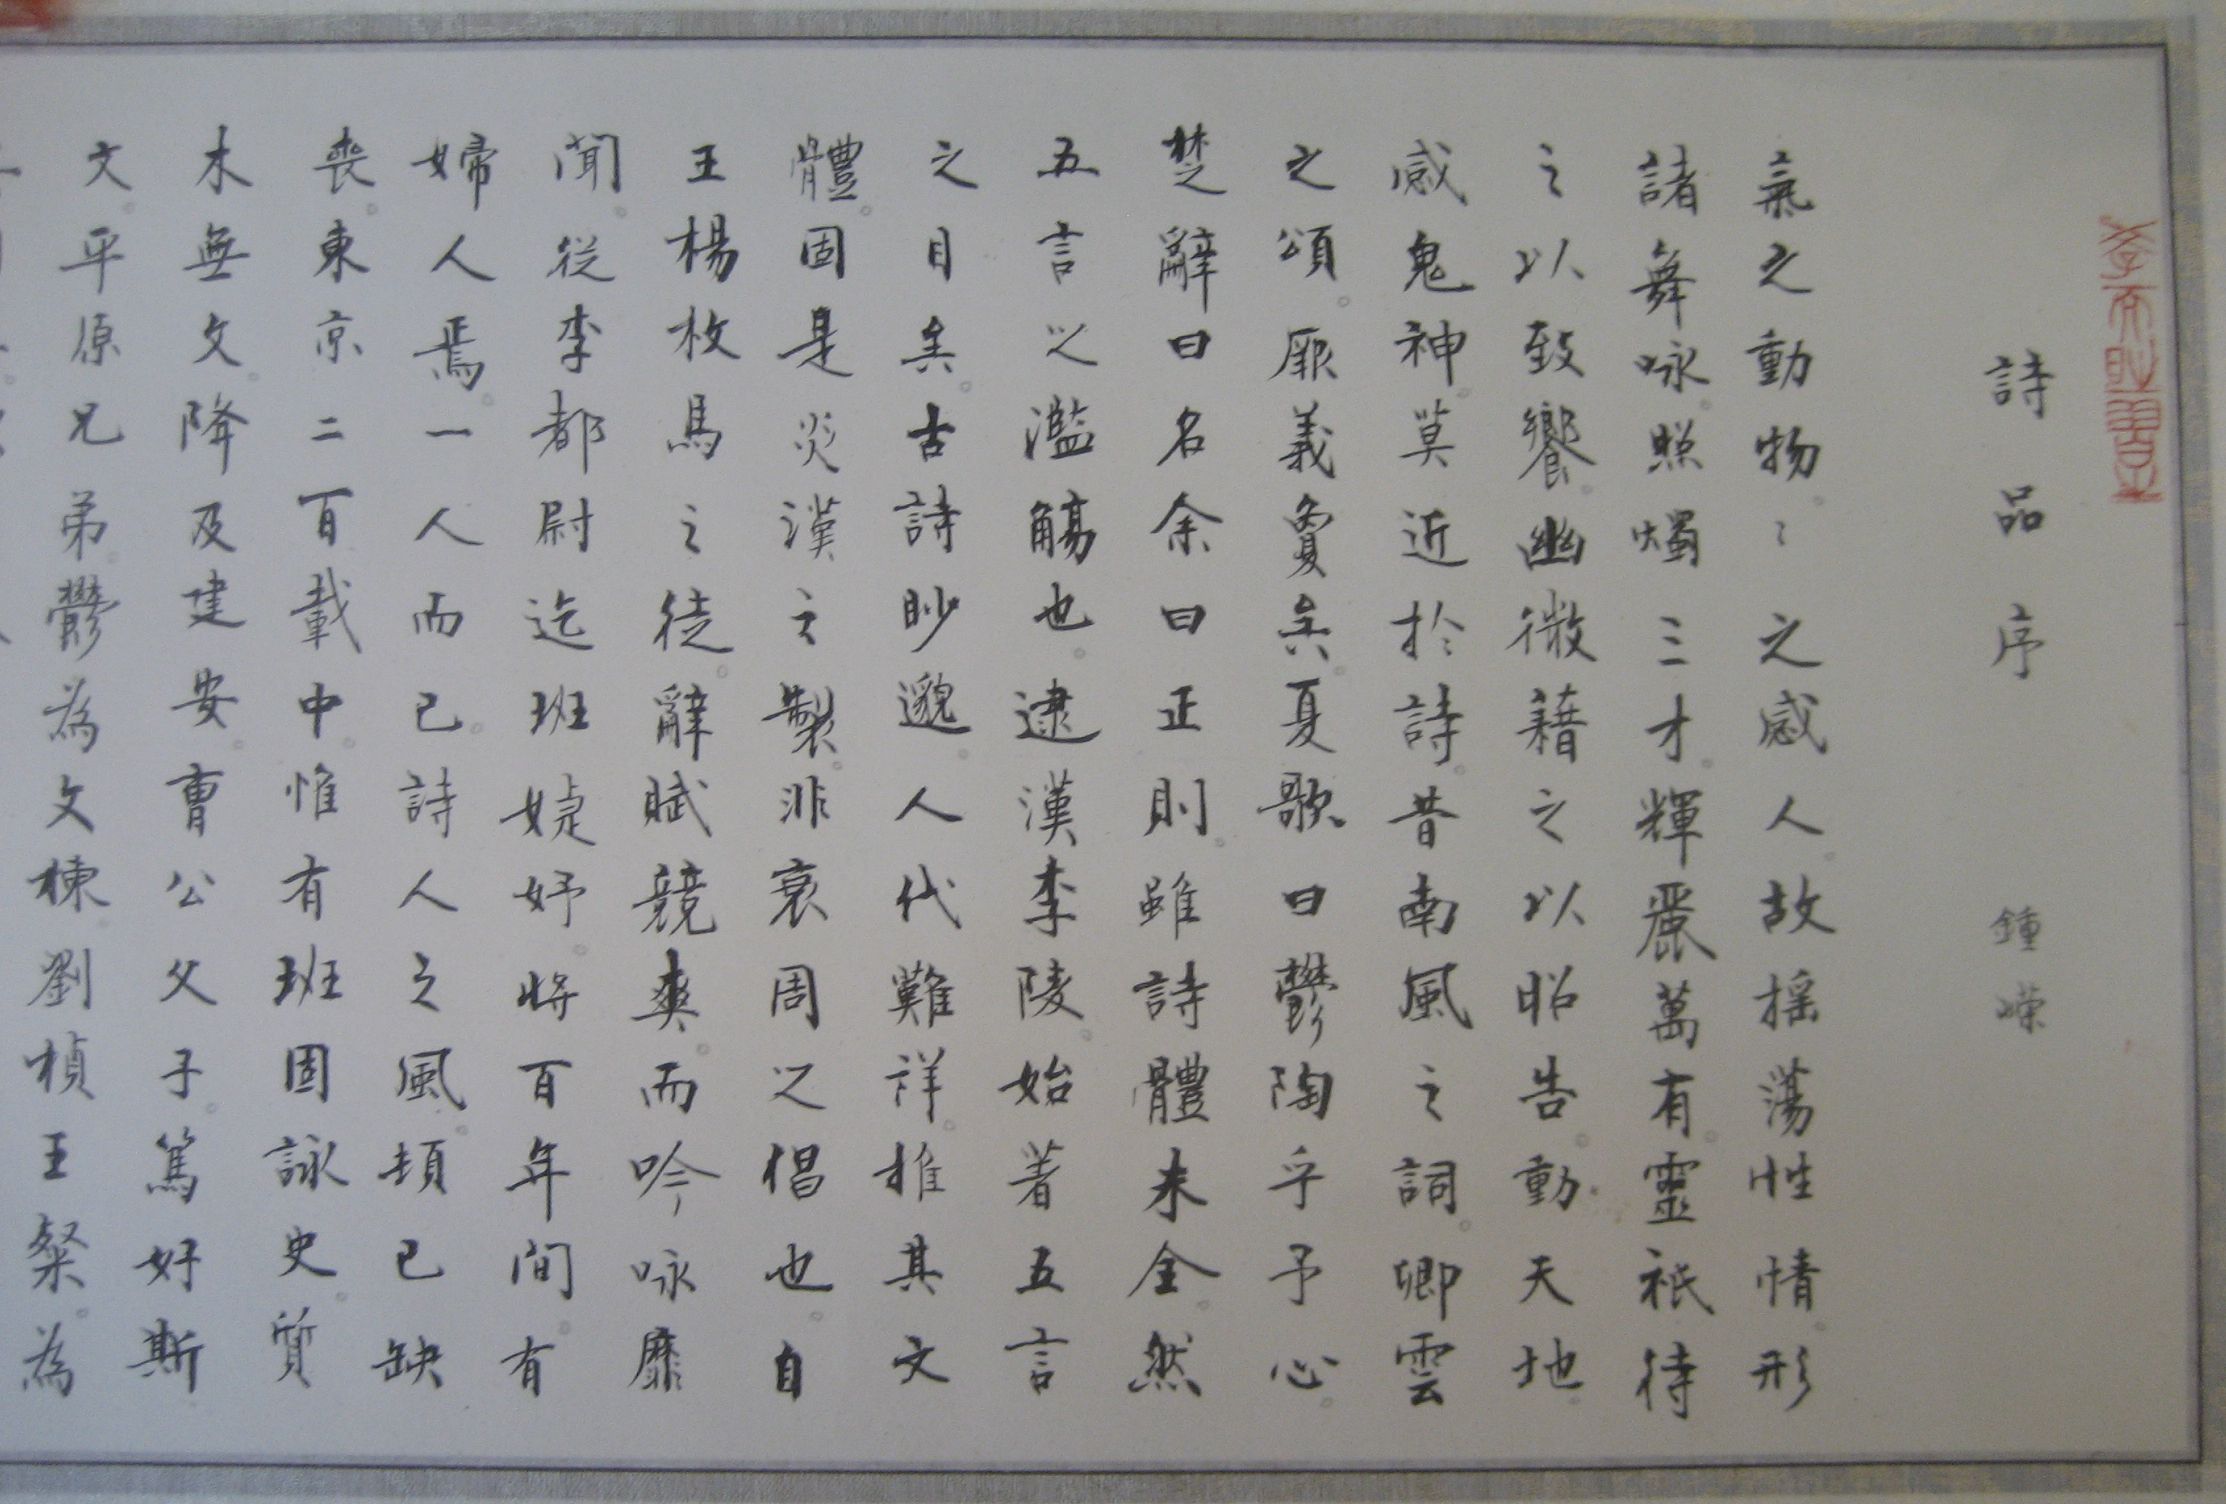 詩品序 鍾嶸
氣之動物。〻之感人。故揺蕩性情。形
諸舞咏。照燭三才。輝麗萬有。靈祇待
之以致饗。幽微藉之以昭告。動天地。
感鬼神。莫近於詩。昔南風之詞。卿雲
之頌。厥義敻矣。夏歌曰鬱陶乎予心。
楚辭曰名余曰正則。雖詩體未全。然
五言之濫觴也。逮漢李陵。始著五言
之目矣。古詩眇邈。人代難祥。推其文
體。固是炎漢之製。非衰周之倡也。自
王楊枚馬之徒。辭賦競爽。而吟咏靡
聞。從李都尉迄班婕妤。將百年間。有
婦人焉。一人而已。詩人之風。頓已缺
喪。東京二百載中。惟有班固詠史。質
木無文。降及建安。曹公父子。篤好斯
文。平原兄弟。鬱為文棟。劉楨王粲。為